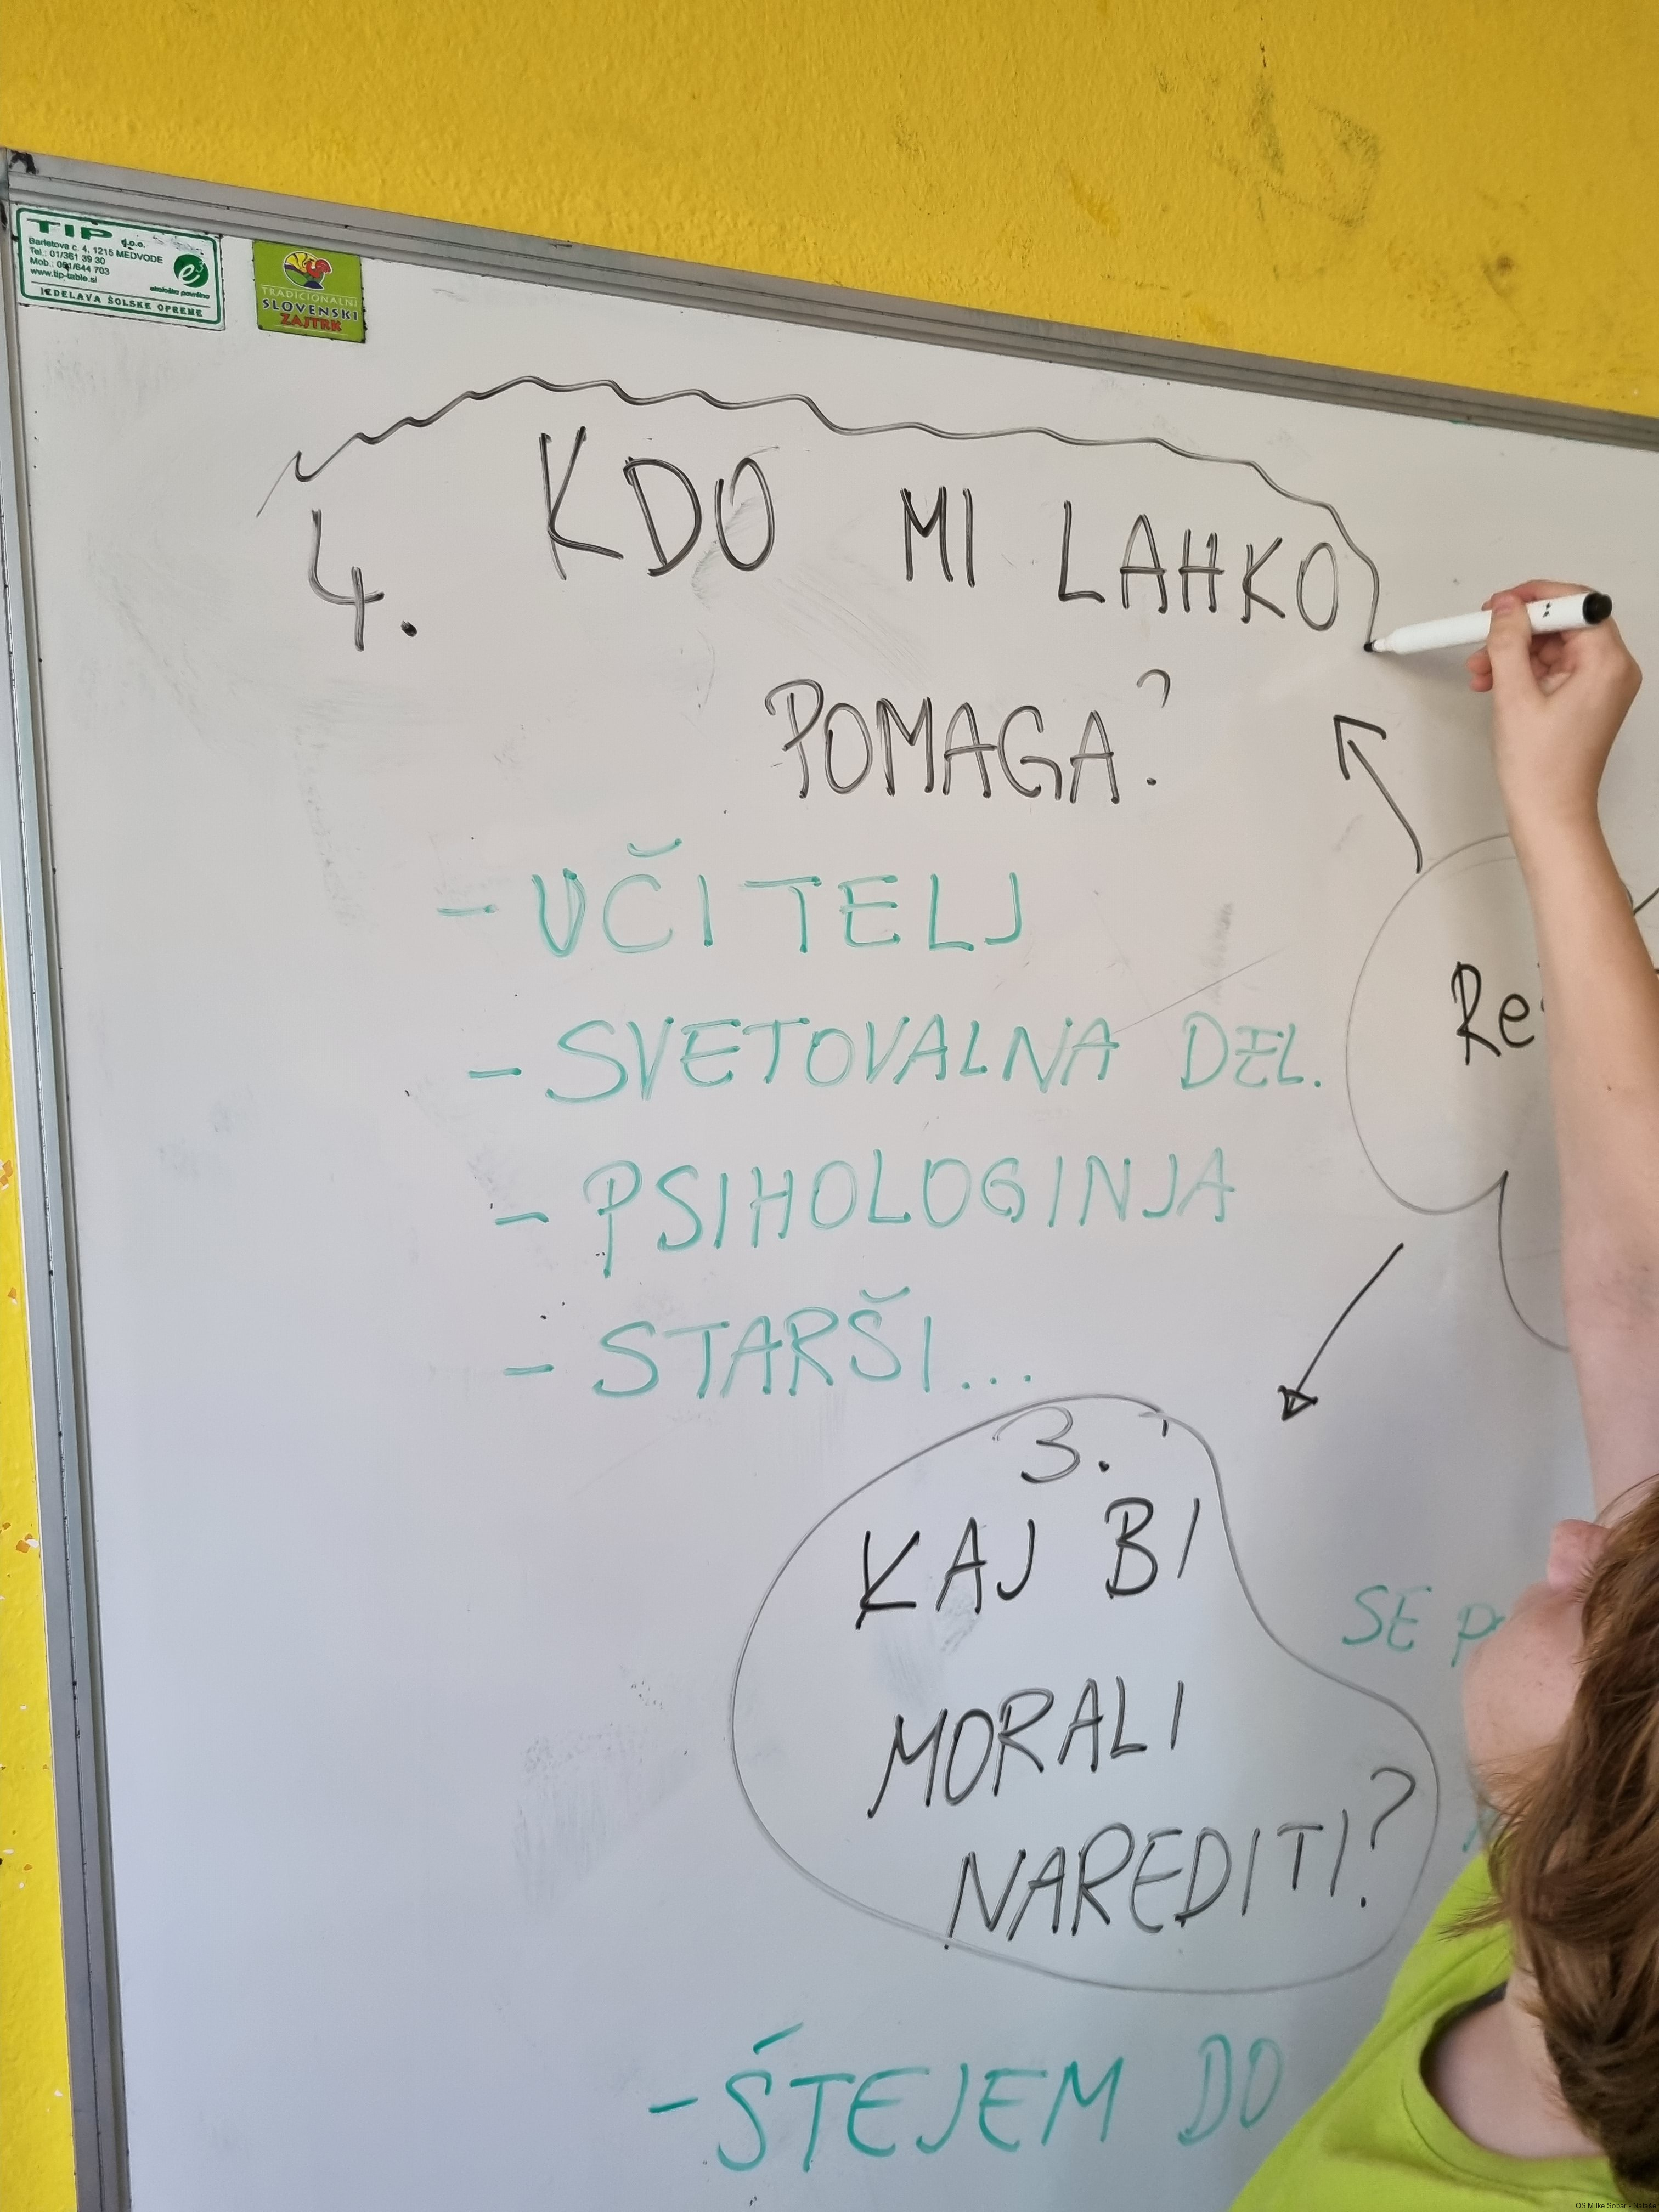 TIP d.o.o.
Barletova c. 4, 1215 MEDVODE
Tel.: 01/361 39 30
Mob.: 051/644 703
www.tip-table.si
e3
ekološka površina
IZDELAVA ŠOLSKE OPREME
TRADICIONALNI
SLOVENSKI
ZAJTRK
4. KDO MI LAHKO
POMAGA?
- UČITELJ
- SVETOVALNA DEL.
- PSIHOLOGINJA
- STARŠI...
Re
3.
KAJ BI
MORALI
NAREDITI?
SE
- ŠTEJEM DO